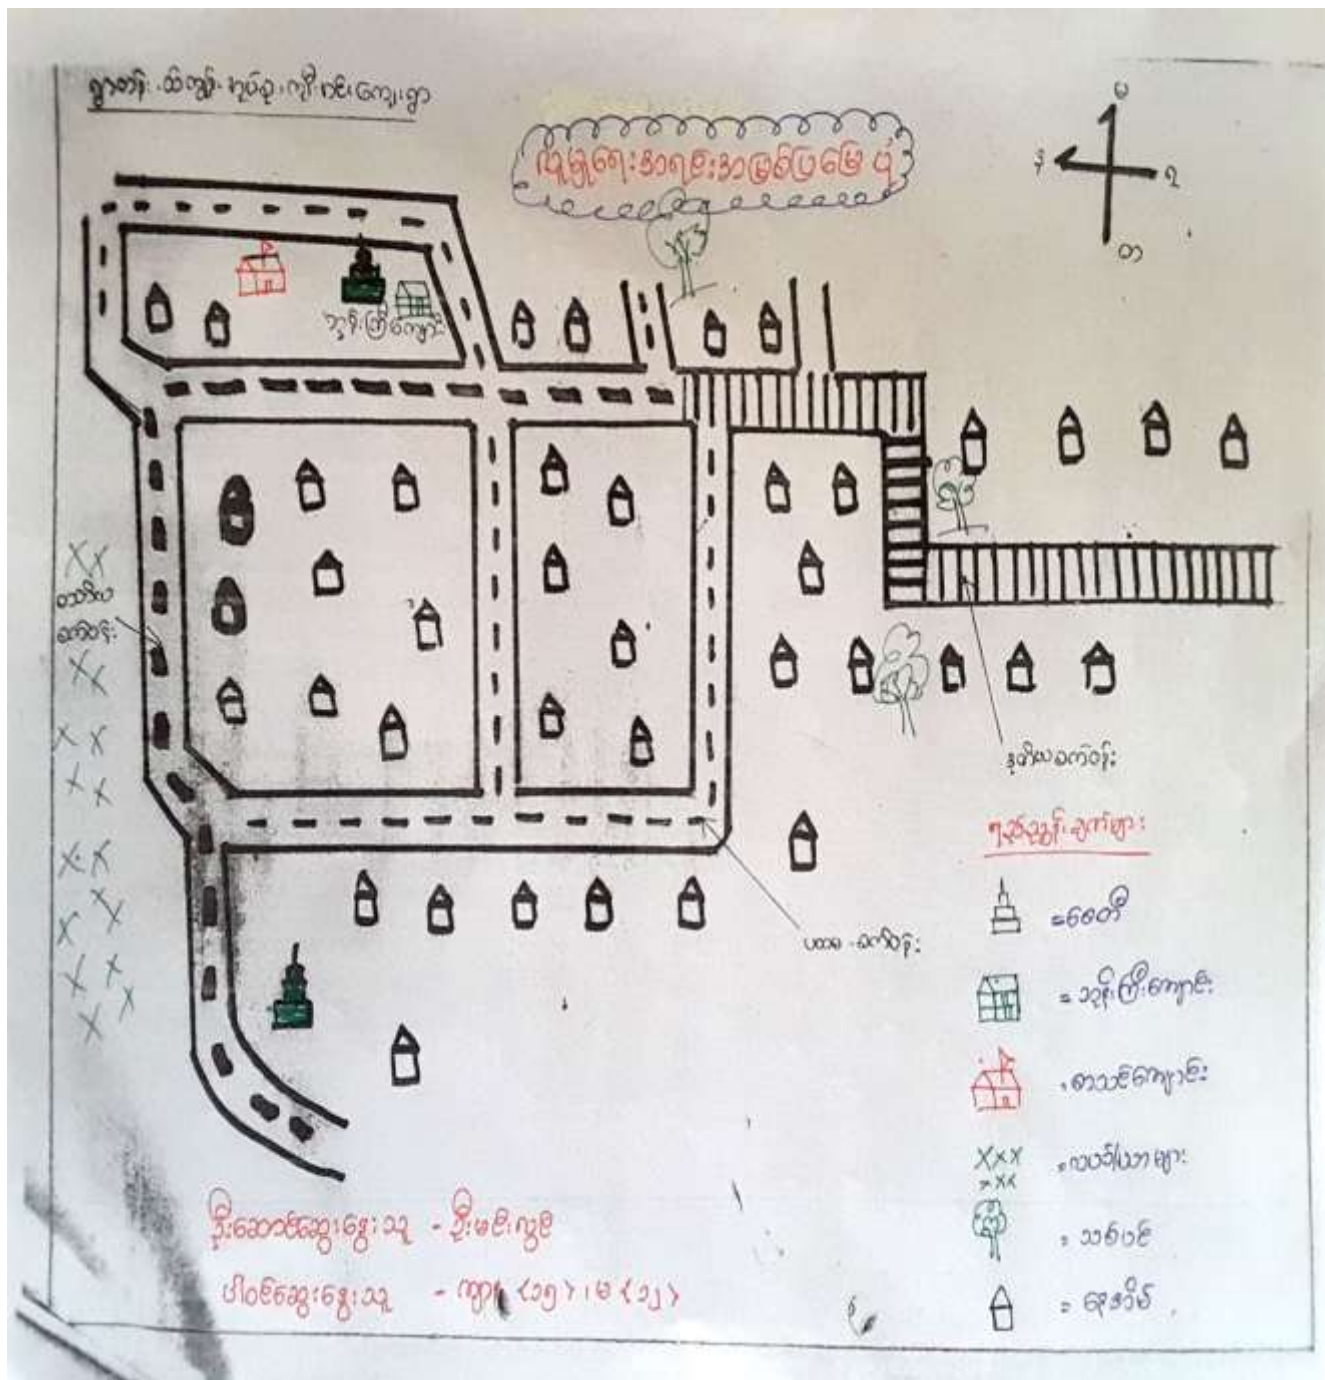 ရွာတန်း၊ ထိကျွန်း အုပ်စု၊ ကျီးကင်း ကျေးရွာ
လူမှုရေးအရင်းအမြစ်ပြမြေပုံ
မ
န
ရ
တ
ဘုန်းကြီးကျောင်း
တတိယ
ခင်ဝန်း
ဒုတိယခင်ဝန်း
ပထမ-ခင်ဝန်း
ရည်ညွှန်းချက်များ
=စေတီ
=ဘုန်းကြီးကျောင်း
=စာသင်ကျောင်း
=လယ်ယာများ
=သစ်ပင်
=နေအိမ်
ဦးဆောင်ဆွေးနွေးသူ - ဦးမင်းလွင်
ပါဝင်ဆွေးနွေးသူ - ကျား <၁၅>၊ မ <၁၂>